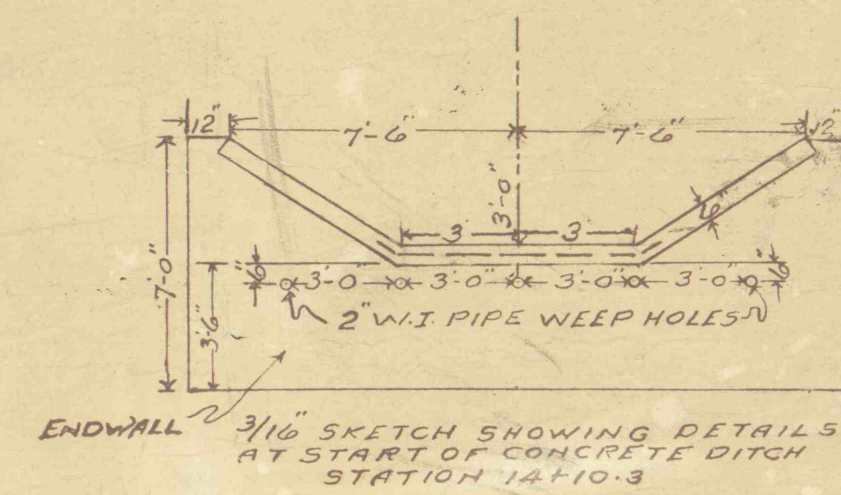 12" 7'-6" 7'-6" 12"
3'-0"
3 3 6"
6" 3'-0" 3'-0" 3'-0" 3'-0" 6"
7'-0"
3'-6"
2" W.I. PIPE WEEP HOLES
ENDWALL
3/16" SKETCH SHOWING DETAILS
AT START OF CONCRETE DITCH
STATION 14+10.3